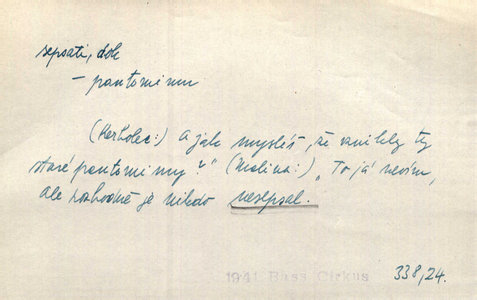 sepsati, dok
– pantomimu
(Kerholec:) a jak myslíš, že vznikly ty
staré pantomimy?" (Malina:) „To já nevím,
ale rozhodně je nikdo nesepsal.
1941 Bass Cirkus 338,24.